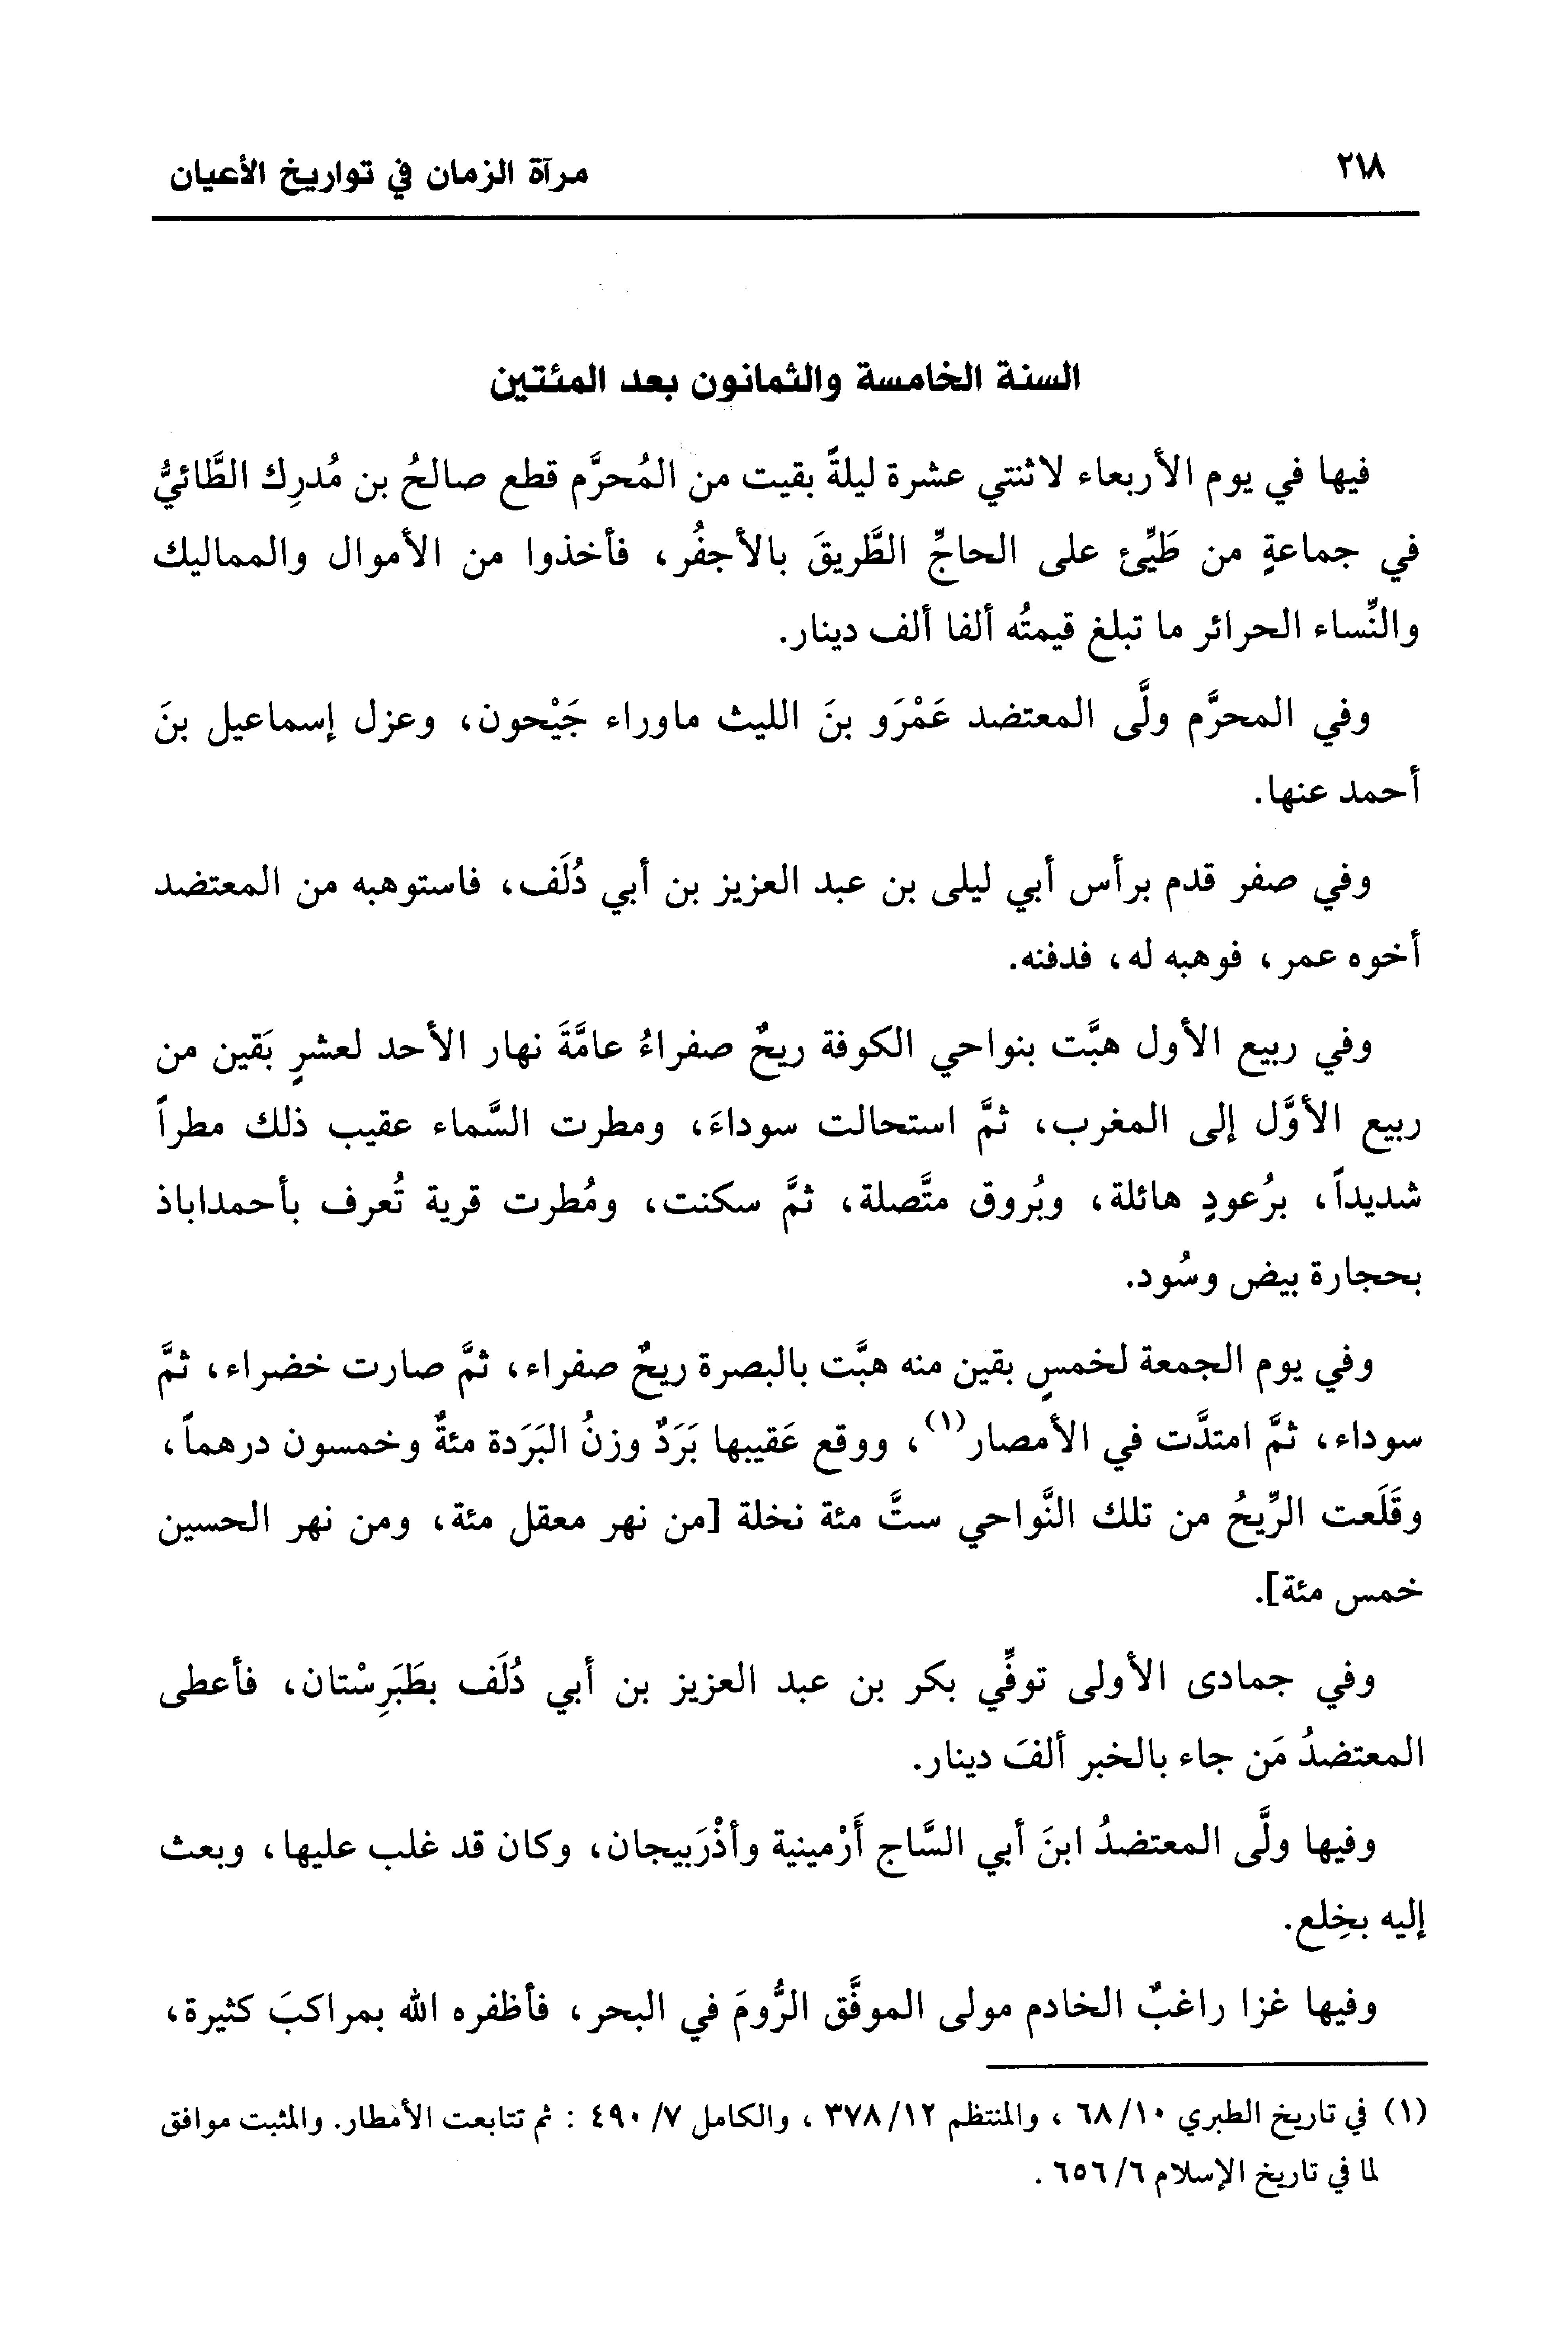 ٢١٨
مرآة الزمان في تواريخ الأعيان
السنة الخامسة والثمانون بعد المئتين
فيها في يوم الأربعاء لاثنتي عشرة ليلةً بقيت من المُحرَّم قطع صالحُ بن مُدرِك الطَّائيُّ
في جماعةٍ من طَيِّئ على الحاجِّ الطَّريقَ بالأجفُر، فأخذوا من الأموال والمماليك
والنِّساء الحرائر ما تبلغ قيمتُه ألفا ألف دينار.
وفي المحرَّم ولَّى المعتضد عَمْرَو بنَ الليث ماوراء جَيْحون، وعزل إسماعيل بنَ
أحمد عنها.
وفي صفر قدم برأس أبي ليلى بن عبد العزيز بن أبي دُلَف، فاستوهبه من المعتضد
أخوه عمر، فوهبه له، فدفنه.
وفي ربيع الأول هبَّت بنواحي الكوفة ريحٌ صفراءُ عامَّةَ نهار الأحد لعشرٍ بَقين من
ربيع الأوَّل إلى المغرب، ثمَّ استحالت سوداءَ، ومطرت السَّماء عقيب ذلك مطراً
شديداً، برُعودٍ هائلة، وبُروق متَّصلة، ثمَّ سكنت، ومُطرت قرية تُعرف بأحمداباذ
بحجارة بيض وسُود.
وفي يوم الجمعة لخمسٍ بقين منه هبَّت بالبصرة ريحٌ صفراء، ثمَّ صارت خضراء، ثمَّ
سوداء، ثمَّ امتدَّت في الأمصار(١)، ووقع عَقيبها بَرَدٌ وزنُ البَرَدة مئةٌ وخمسون درهماً،
وقَلَعت الرِّيحُ من تلك النَّواحي ستَّ مئة نخلة [من نهر معقل مئة، ومن نهر الحسين
خمس مئة].
وفي جمادى الأولى توفِّي بكر بن عبد العزيز بن أبي دُلَف بطَبَرِسْتان، فأعطى
المعتضدُ مَن جاء بالخبر ألفَ دينار.
وفيها ولَّى المعتضدُ ابنَ أبي السَّاج أَرْمينية وأذْرَبيجان، وكان قد غلب عليها، وبعث
إليه بخِلع.
وفيها غزا راغبٌ الخادم مولى الموفَّق الرُّومَ في البحر، فأظفره الله بمراكبَ كثيرة،
(١) في تاريخ الطبري ٦٨/١٠ ، والمنتظم ٣٧٨/١٢ ، والكامل ٤٩٠/٧ : ثم تتابعت الأمطار. والمثبت موافق
لما في تاريخ الإسلام ٦٥٦/٦ .